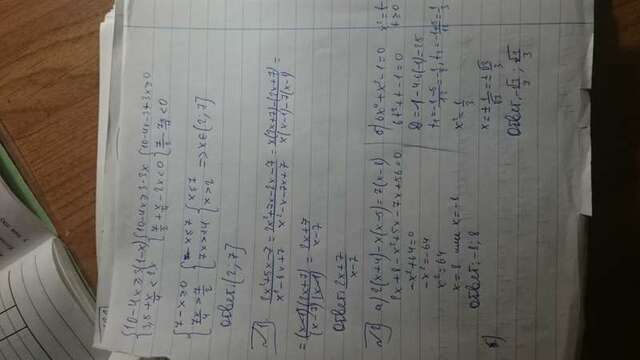 {10-4x≥3(1-x) {10-4x≥3-3x {10-4x-3+3x≥0
{3,5+x/4<2x {7/2+x/4-2x<0 {7/2-7x/4<0
{7-x≥0 {x≤7 {x≤7
{7x/4>7/2 {7x>14 {x>2 =>x∈(2;7]
Ответ: (2;7]
№1. (2x²+5x-7)/(x²-8x+7)=(2x²+7x-2x-7)/(x²-x-7x+7)=(x(2x+7)-(2x+7))/(x(x-1)-7(x-1))=
=((x-1)(2x+7))/((x-7)(x-1))=(2x+7)/(x-7)
Ответ: (2x+7)/(x-7)
№2 а) 2(x+4)-x(x-5)=7(x-8)
2x+8-x²+5x-7x+56=0
-x²+64=0
-x²=-64
x²=64
x=8 или x=-8
Ответ: -8; 8
б) 6x⁴+x²-1=0 x²=t
6t²+t-1=0 t≥0
D=1-4·6(-1)=25
t₁=(-1-5)/12=-1/2, t₂=(-1+5)/12=1/3
x²=1/3
x=±1/√3=±√3/3
Ответ: -√3/3; √3/3